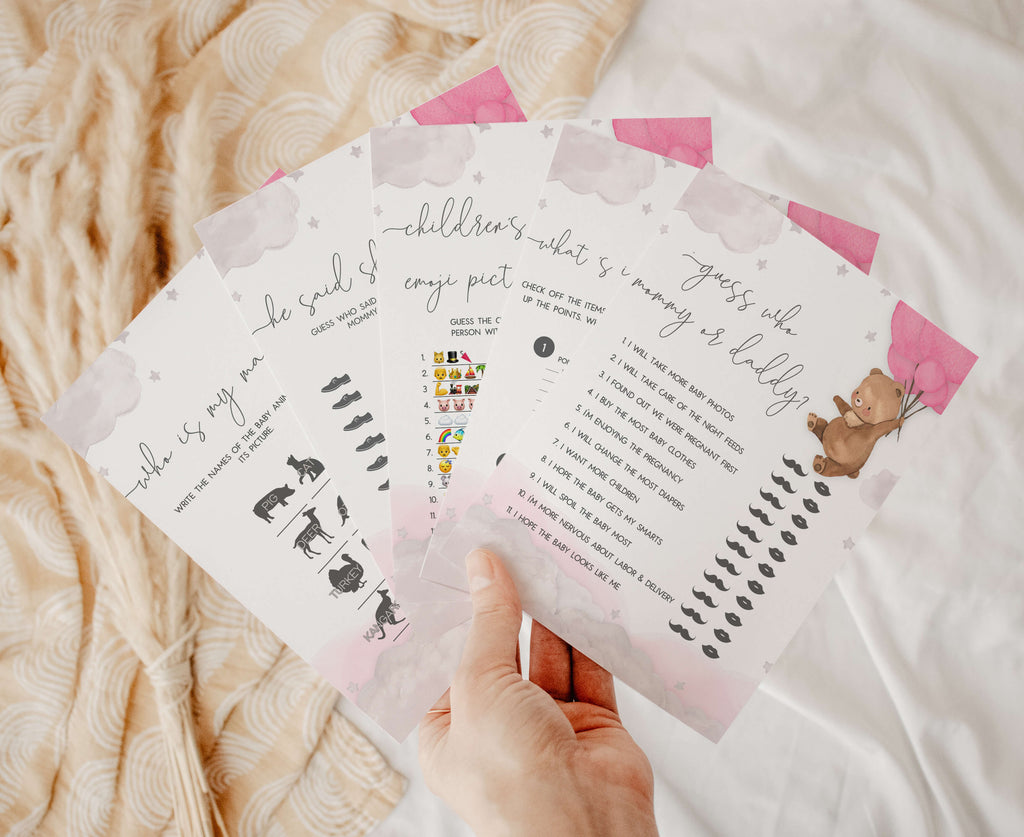 who is my ma
WRITE THE NAMES OF THE BABY ANI
ITS PICTURE
CAT
PIG
TURKEY
he said s
GUESS WHO SAID
MOMMY
children's
emoji pict
GUESS THE C
PERSON WIT
1.
2.
3.
4.
5.
6.
7.
8.
9.
10.
11.
what's i
CHECK OFF THE ITEMS
UP THE POINTS. WI
1
guess who
mommy or daddy?
1. I WILL TAKE MORE BABY PHOTOS
2. I WILL TAKE CARE OF THE NIGHT FEEDS
3. I FOUND OUT WE WERE PREGNANT FIRST
4. I BUY THE MOST BABY CLOTHES
5. I'M ENJOYING THE PREGNANCY
6. I WILL CHANGE THE MOST DIAPERS
7. I WANT MORE CHILDREN
8. I HOPE THE BABY GETS MY SMARTS
9. I WILL SPOIL THE BABY MOST
10. I'M MORE NERVOUS ABOUT LABOR & DELIVERY
11. I HOPE THE BABY LOOKS LIKE ME